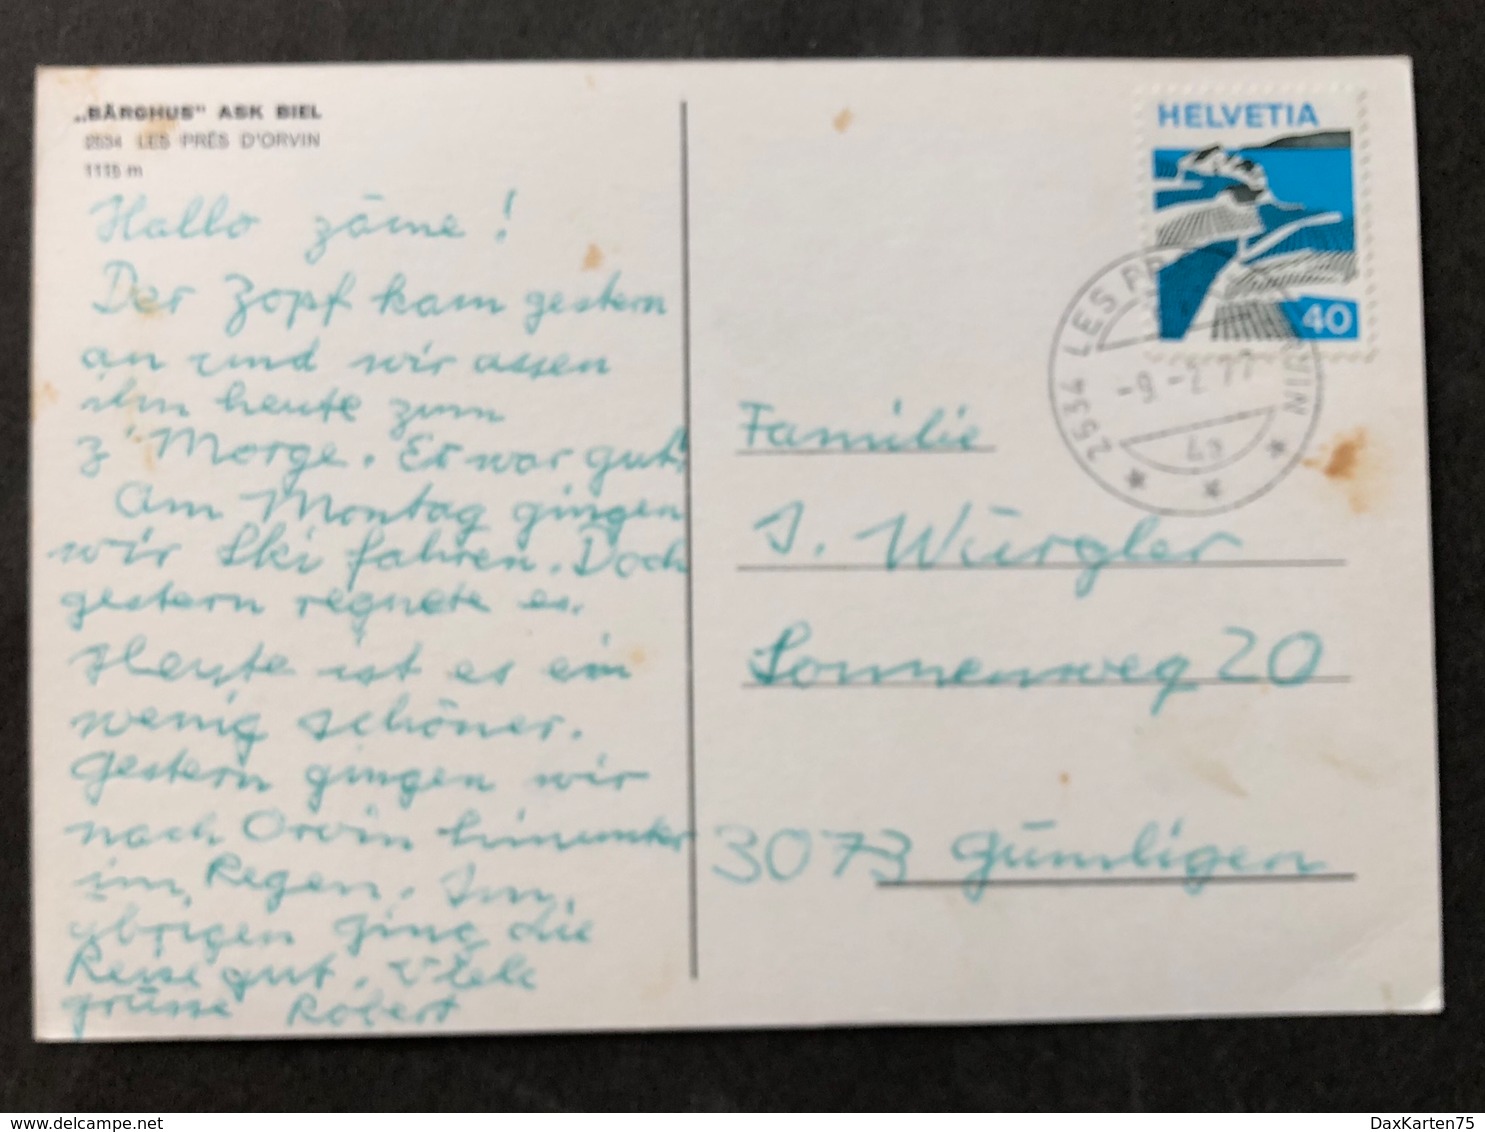 „BÄRGHUS" ASK BIEL
2534 LES PRÉS D'ORVIN
1115 m
Hallo zäme!
Der Zopf kam gestern
an und wir assen
ihn heute zum
z'Morge. Er war gut!
Am Montag gingen
wir Ski fahren. Doch
gestern regnete es.
Heute ist es ein
wenig schöner.
Gestern gingen wir
nach Orvin hinunter
im Regen. Im
übrigen ging die
Reise gut. Viele
grüsse Robert
HELVETIA
40
2534 LES PR VIN
-9.-2.77
Familie
J. Würgler
Sonnenweg 20
3073 Gümligen
delcampe.net
DaxKarten75